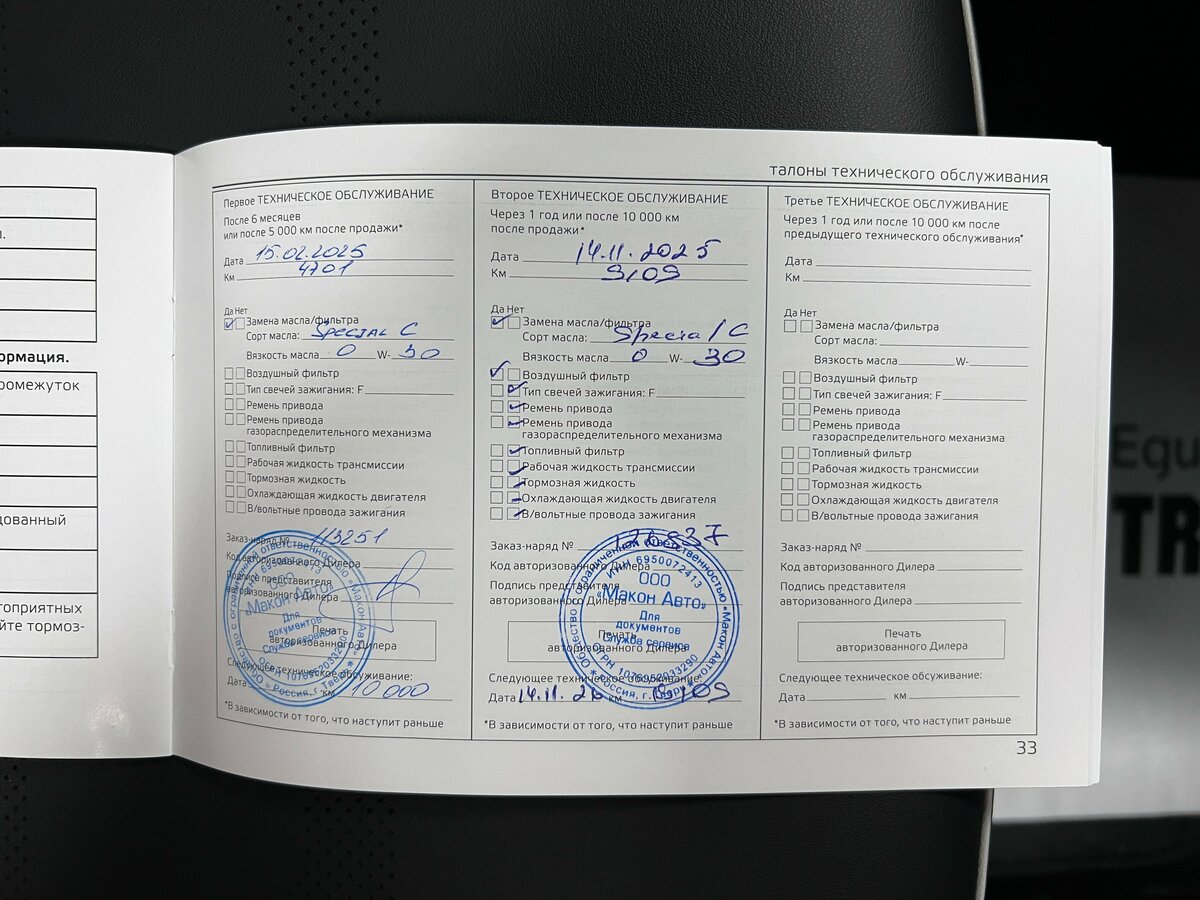 л.
ормация.
ромежуток
дованный
гоприятных
йте тормоз-
талоны технического обслуживания
Первое ТЕХНИЧЕСКОЕ ОБСЛУЖИВАНИЕ
После 6 месяцев
или после 5 000 км после продажи*
Дата 15.02.2025
Км 4701
Да Нет
Замена масла/фильтра
Сорт масла: Special C
Вязкость масла 0 W- 30
Воздушный фильтр
Тип свечей зажигания: F
Ремень привода
Ремень привода
газораспределительного механизма
Топливный фильтр
Рабочая жидкость трансмиссии
Тормозная жидкость
Охлаждающая жидкость двигателя
В/вольтные провода зажигания
Заказ-наряд № 113251
Код авторизованного Дилера
Подпись представителя
авторизованного Дилера
Печать
авторизованного Дилера
Общество с ограниченной ответственностью «Макон Авто»
ИНН 6950072413
ООО
«Макон Авто»
Для
документов
Служба сервиса
ОГРН 1076952033290
Россия, г. Тверь
Следующее техническое обсуживание:
Дата км 10 000
*В зависимости от того, что наступит раньше
Второе ТЕХНИЧЕСКОЕ ОБСЛУЖИВАНИЕ
Через 1 год или после 10 000 км
после продажи*
Дата 14.11.2025
Км 9109
Да Нет
Замена масла/фильтра
Сорт масла: Special C
Вязкость масла 0 W- 30
Воздушный фильтр
Тип свечей зажигания: F
Ремень привода
Ремень привода
газораспределительного механизма
Топливный фильтр
Рабочая жидкость трансмиссии
Тормозная жидкость
Охлаждающая жидкость двигателя
В/вольтные провода зажигания
Заказ-наряд № 126837
Код авторизованного Дилера
Подпись представителя
авторизованного Дилера
Печать
авторизованного Дилера
Общество с ограниченной ответственностью «Макон Авто»
ИНН 6950072413
ООО
«Макон Авто»
Для
документов
Служба сервиса
ОГРН 1076952033290
Россия, г. Тверь
Следующее техническое обсуживание:
Дата 14.11.26 км
*В зависимости от того, что наступит раньше
Третье ТЕХНИЧЕСКОЕ ОБСЛУЖИВАНИЕ
Через 1 год или после 10 000 км после
предыдущего технического обслуживания*
Дата
Км
Да Нет
Замена масла/фильтра
Сорт масла:
Вязкость масла W-
Воздушный фильтр
Тип свечей зажигания: F
Ремень привода
Ремень привода
газораспределительного механизма
Топливный фильтр
Рабочая жидкость трансмиссии
Тормозная жидкость
Охлаждающая жидкость двигателя
В/вольтные провода зажигания
Заказ-наряд №
Код авторизованного Дилера
Подпись представителя
авторизованного Дилера
Печать
авторизованного Дилера
Следующее техническое обсуживание:
Дата км
*В зависимости от того, что наступит раньше
33
Equ
TR